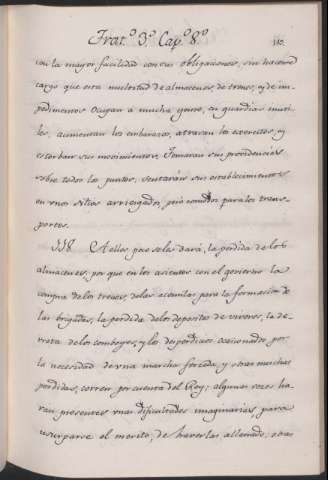 Trat.º 3º Cap.º 8º
con la mayor facilidad con sus obligaciones, sin hacerse
cargo que esta multitud de almacenes de trenes, y de im-
pedimentos ocupan a mucha gente, en guardias inuti-
les, aumentan los embarazos, atrasan los exercitos, y
estorban sus movimientos; Tomaran sus providencias
sobre todos los puntos; sentarán sus establecimientos
en unos sitios arriesgados, pero comodos para los trans-
portes.
558. A ellos que se les dará, la perdida de los
almacenes, por que en los asientos con el govierno la
compra de los trenes, de las acemilas para la formacion de
las brigadas, la perdida de los depositos de viveres, la de-
rrota de los comboyes, y los desperdicios ocasionados por
la necesidad de una marcha forzada, y otras muchas
perdidas, corren por cuenta del Rey; algunas veces ha-
ran presentes unas dificultades imaginarias, para
usurparse el merito, de haverlas allanado; otras